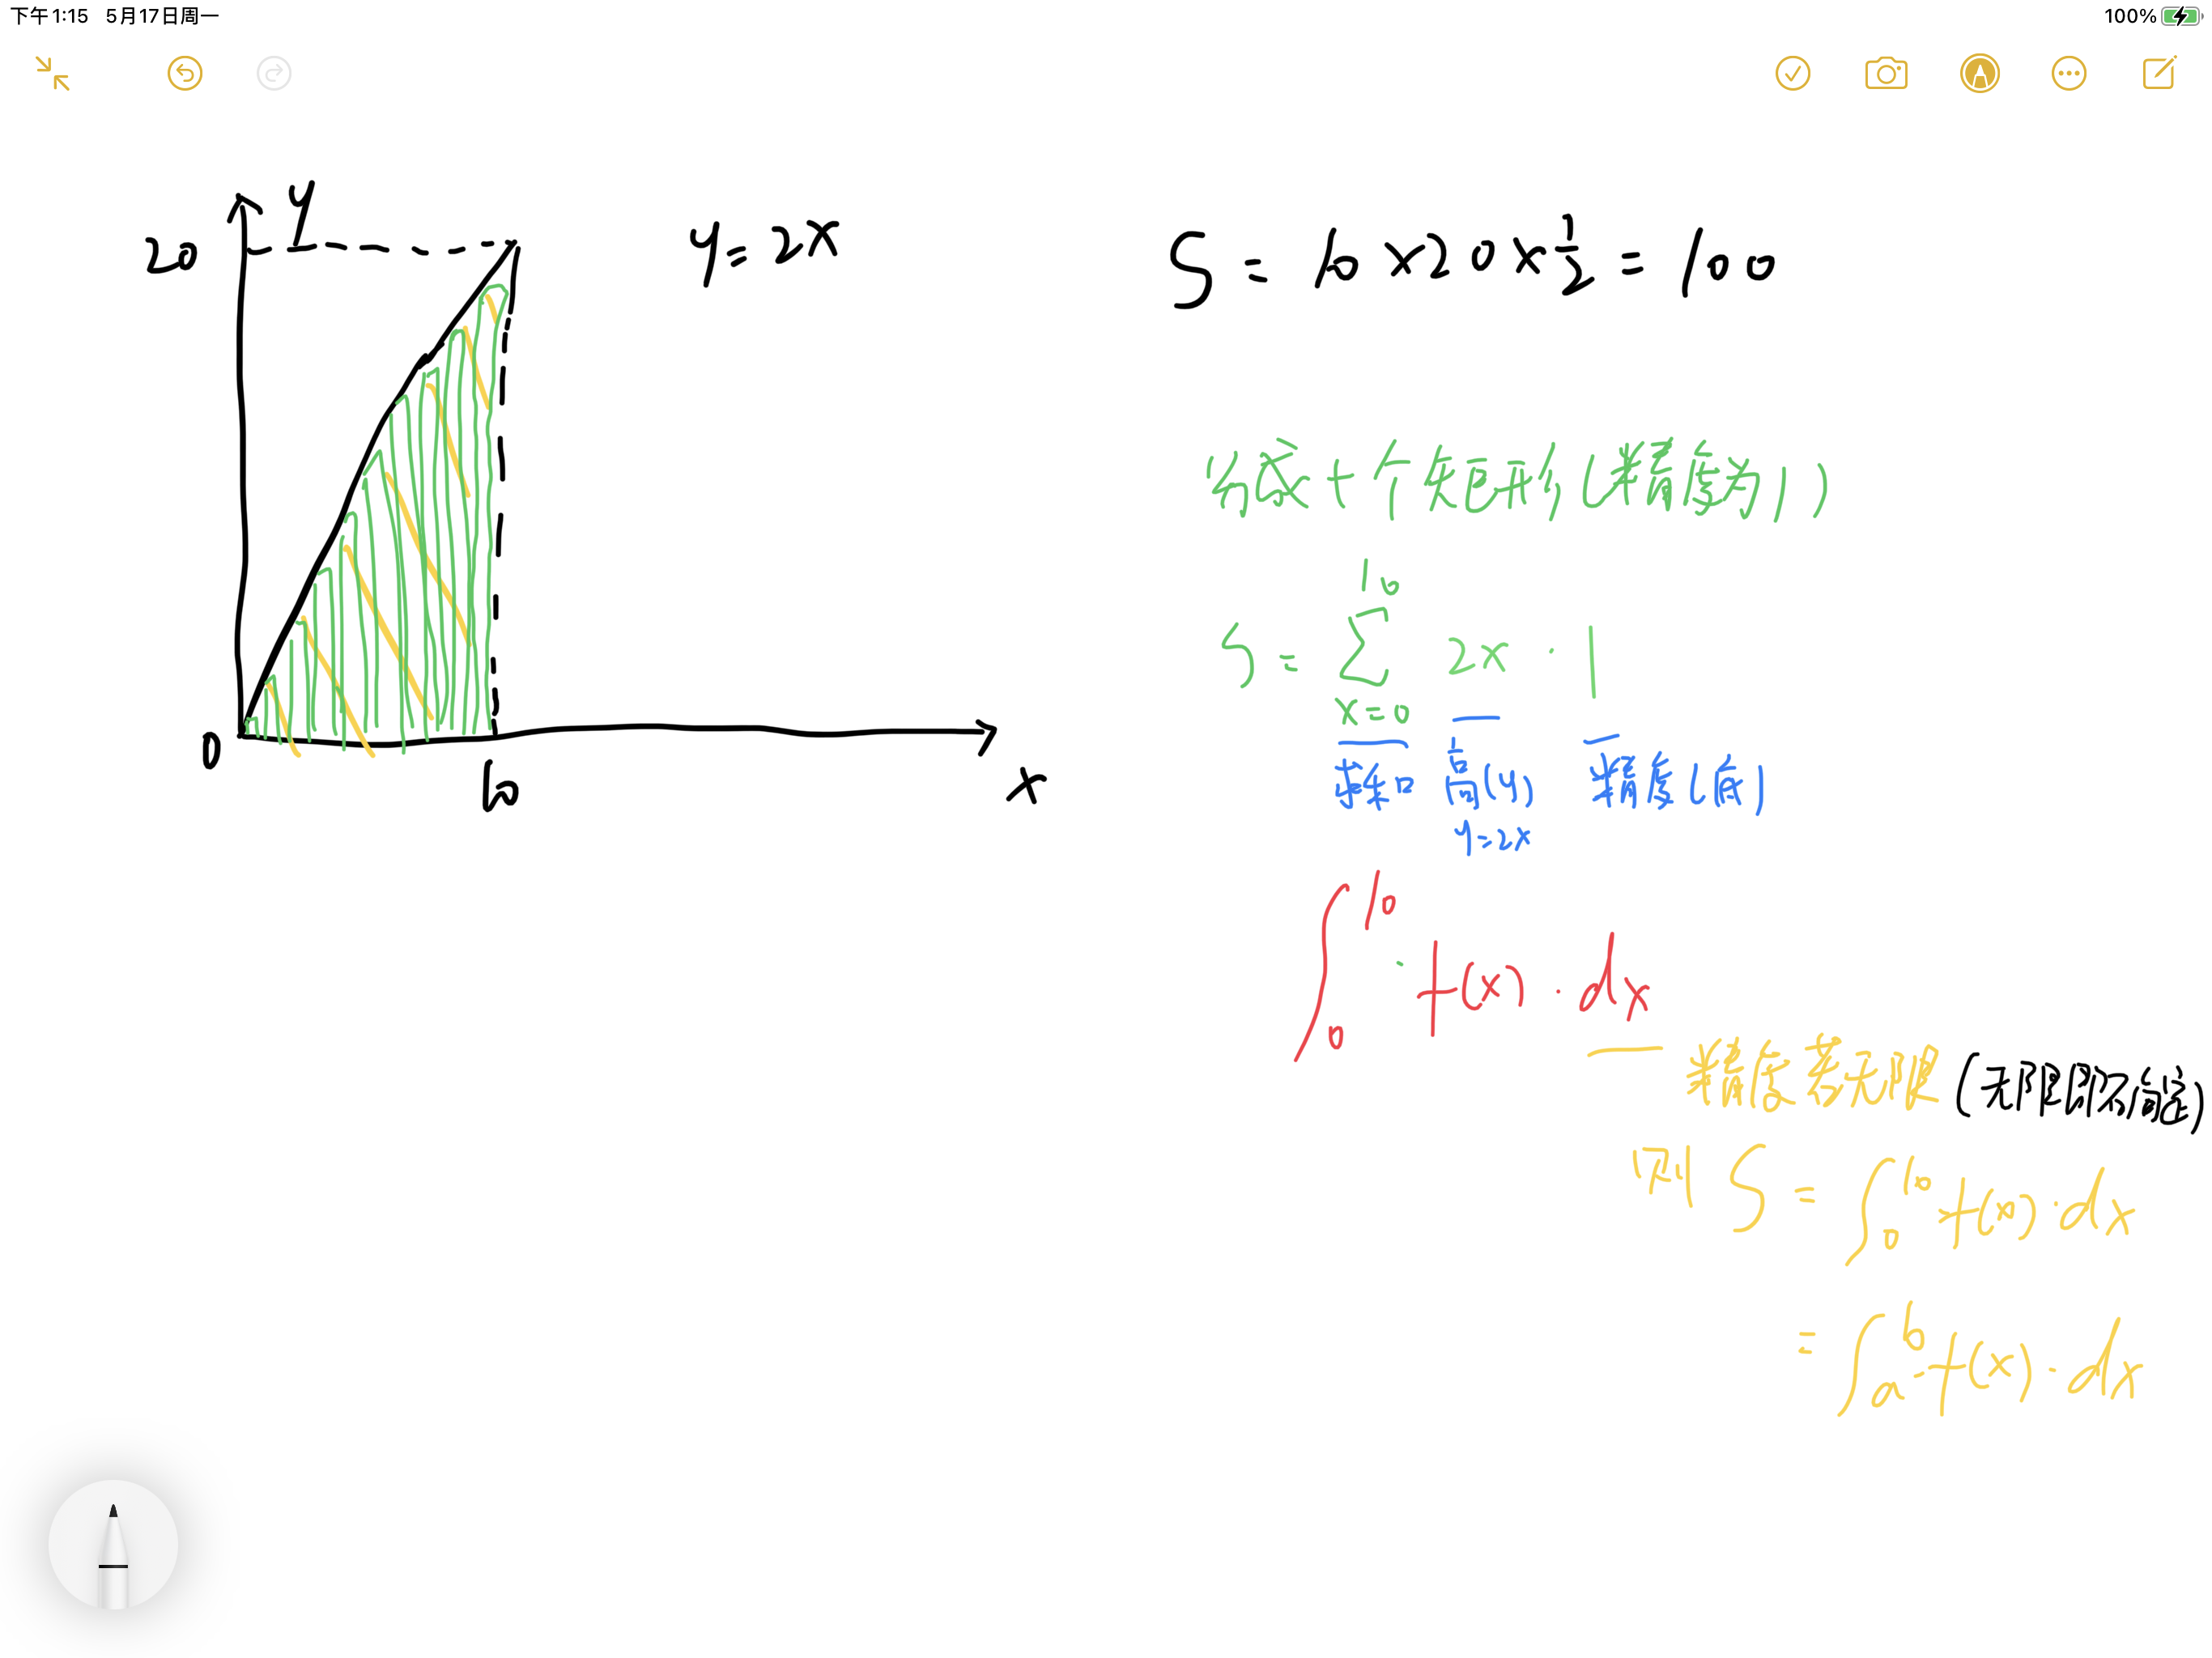 下午1:15 5月17日周一
100%
y
20
y=2x
S = 10 × 20 × 1/2 = 100
0
10
x
分成十个矩形(精度为1)
10
S = Σ 2x · 1
x=0
求和 高(y) 精度(底)
y=2x
∫₀¹⁰ f(x) · dx
精度若无限(无限即不确定)
则 S = ∫₀¹⁰ f(x) · dx
= ∫ₐᵇ f(x) · dx